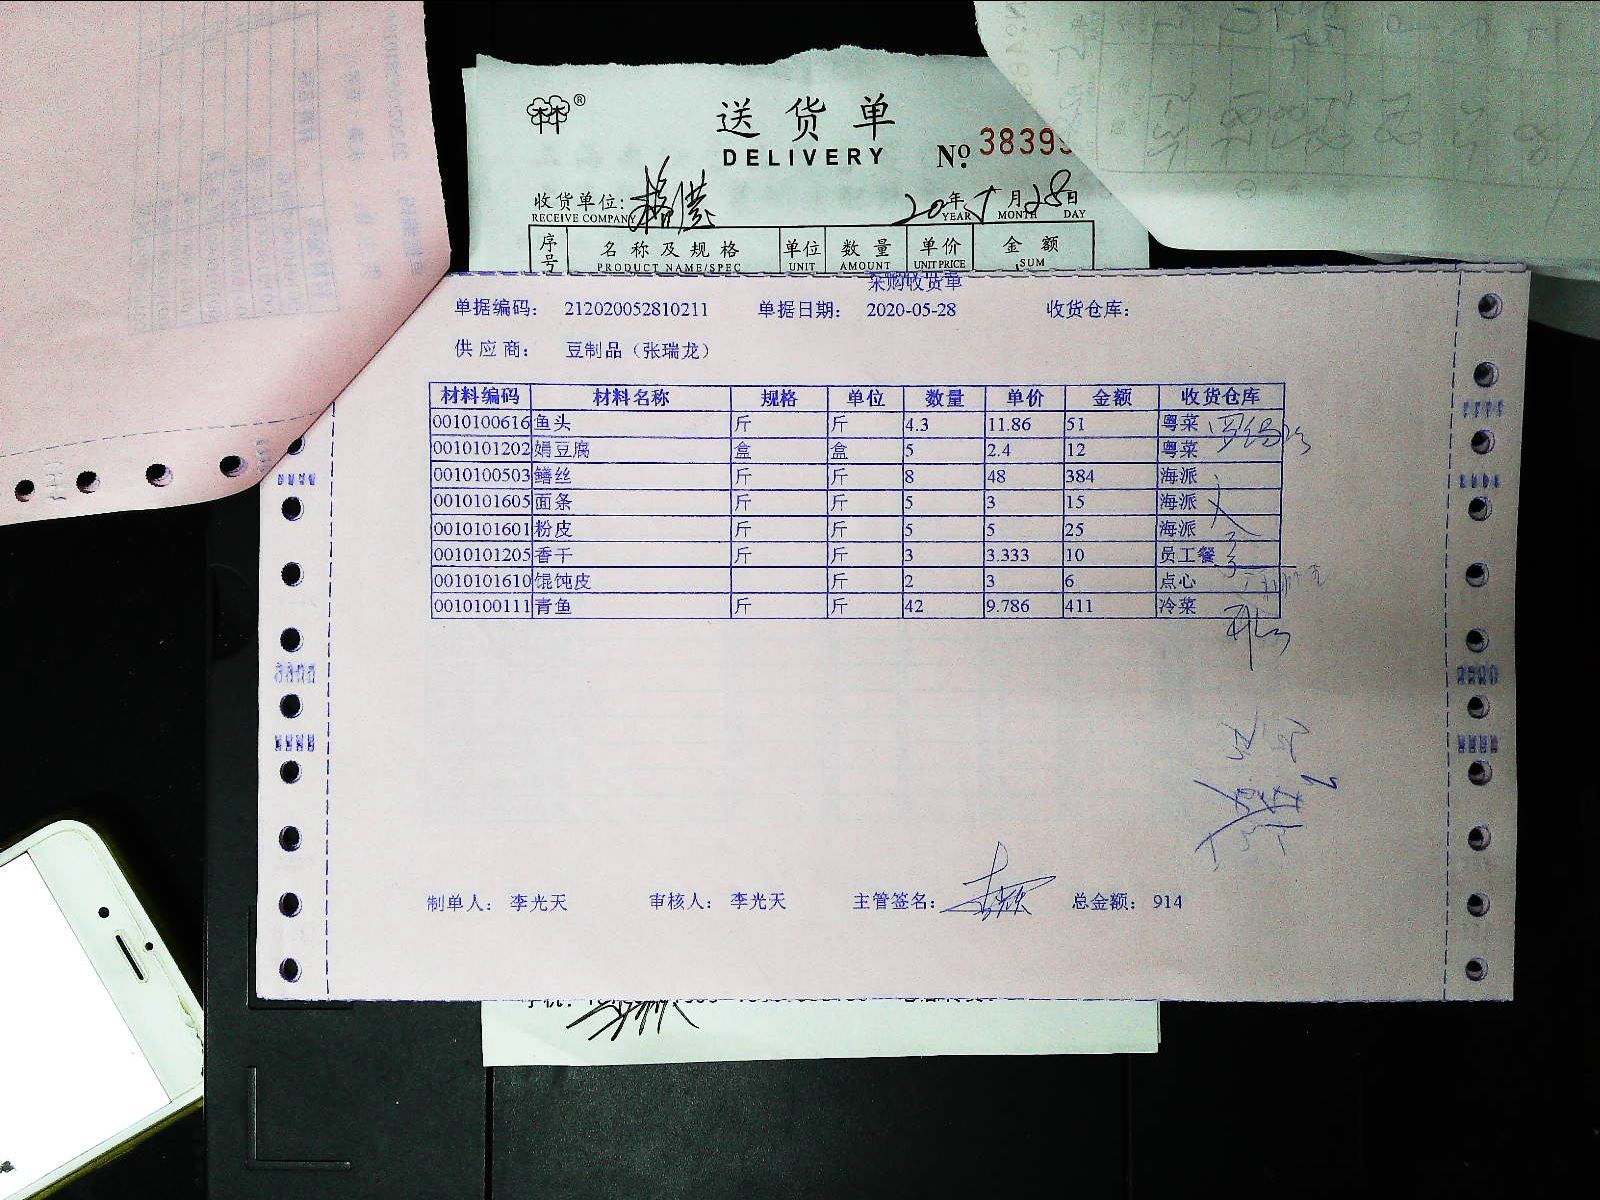 ®
送货单
DELIVERY
№ 3839
收货单位:
RECEIVE COMPANY
20年5月28日
YEAR MONTH DAY
序号 名称及规格 单位 数量 单价 金额
PRODUCT NAME/SPEC UNIT AMOUNT UNIT PRICE SUM
采购收货单
单据编码: 212020052810211 单据日期: 2020-05-28 收货仓库:
供应商: 豆制品（张瑞龙）
材料编码 材料名称 规格 单位 数量 单价 金额 收货仓库
0010100616 鱼头 斤 斤 4.3 11.86 51 粤菜
0010101202 娟豆腐 盒 盒 5 2.4 12 粤菜
0010100503 鳝丝 斤 斤 8 48 384 海派
0010101605 面条 斤 斤 5 3 15 海派
0010101601 粉皮 斤 斤 5 5 25 海派
0010101205 香干 斤 斤 3 3.333 10 员工餐
0010101610 馄饨皮 斤 2 3 6 点心
0010100111 青鱼 斤 斤 42 9.786 411 冷菜
制单人: 李光天 审核人: 李光天 主管签名: 总金额: 914